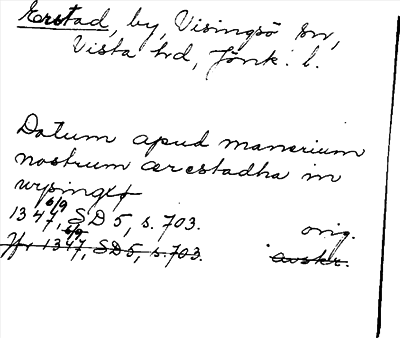 Erstad, by, Visingsö sn,
Vista hrd, Jönk. l.
Datum apud manerium
nostrum ærestadha in
wysingxø
1347 6/9, SD 5, s. 703. orig.
Jfr 1347 6/9, SD 5, s. 703. avskr.